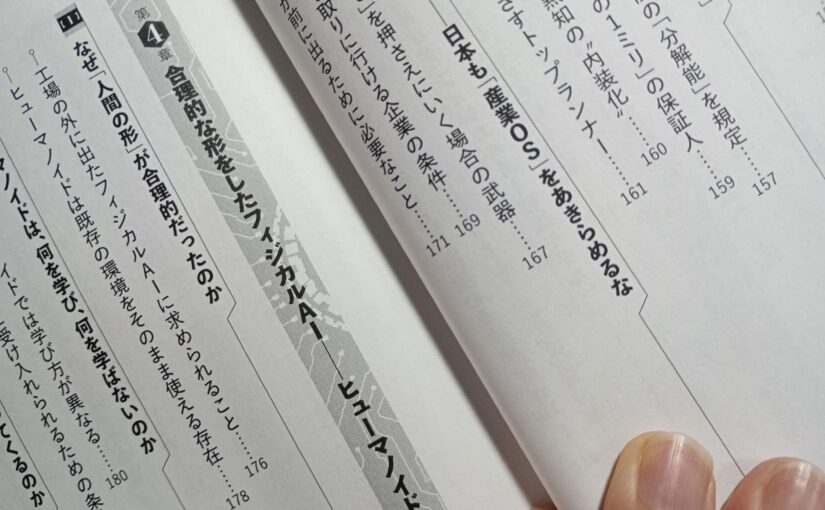 の「分解能」を規定……157
の1ミリ」の保証人……159
黙知の〝内装化〟……160
さすトップランナー……161
日本も「産業OS」をあきらめるな
」を押さえにいく場合の武器……167
取りに行ける企業の条件……169
が前に出るために必要なこと……171
第4章 合理的な形をしたフィジカルAI――ヒューマノイド
【1】なぜ「人間の形」が合理的だったのか
工場の外に出たフィジカルAIに求められること……176
ヒューマノイドは既存の環境をそのまま使える存在……178
マノイドは、何を学び、何を学ばないのか
イドでは学び方が異なる……180
に受け入れられるための条
てくるのか